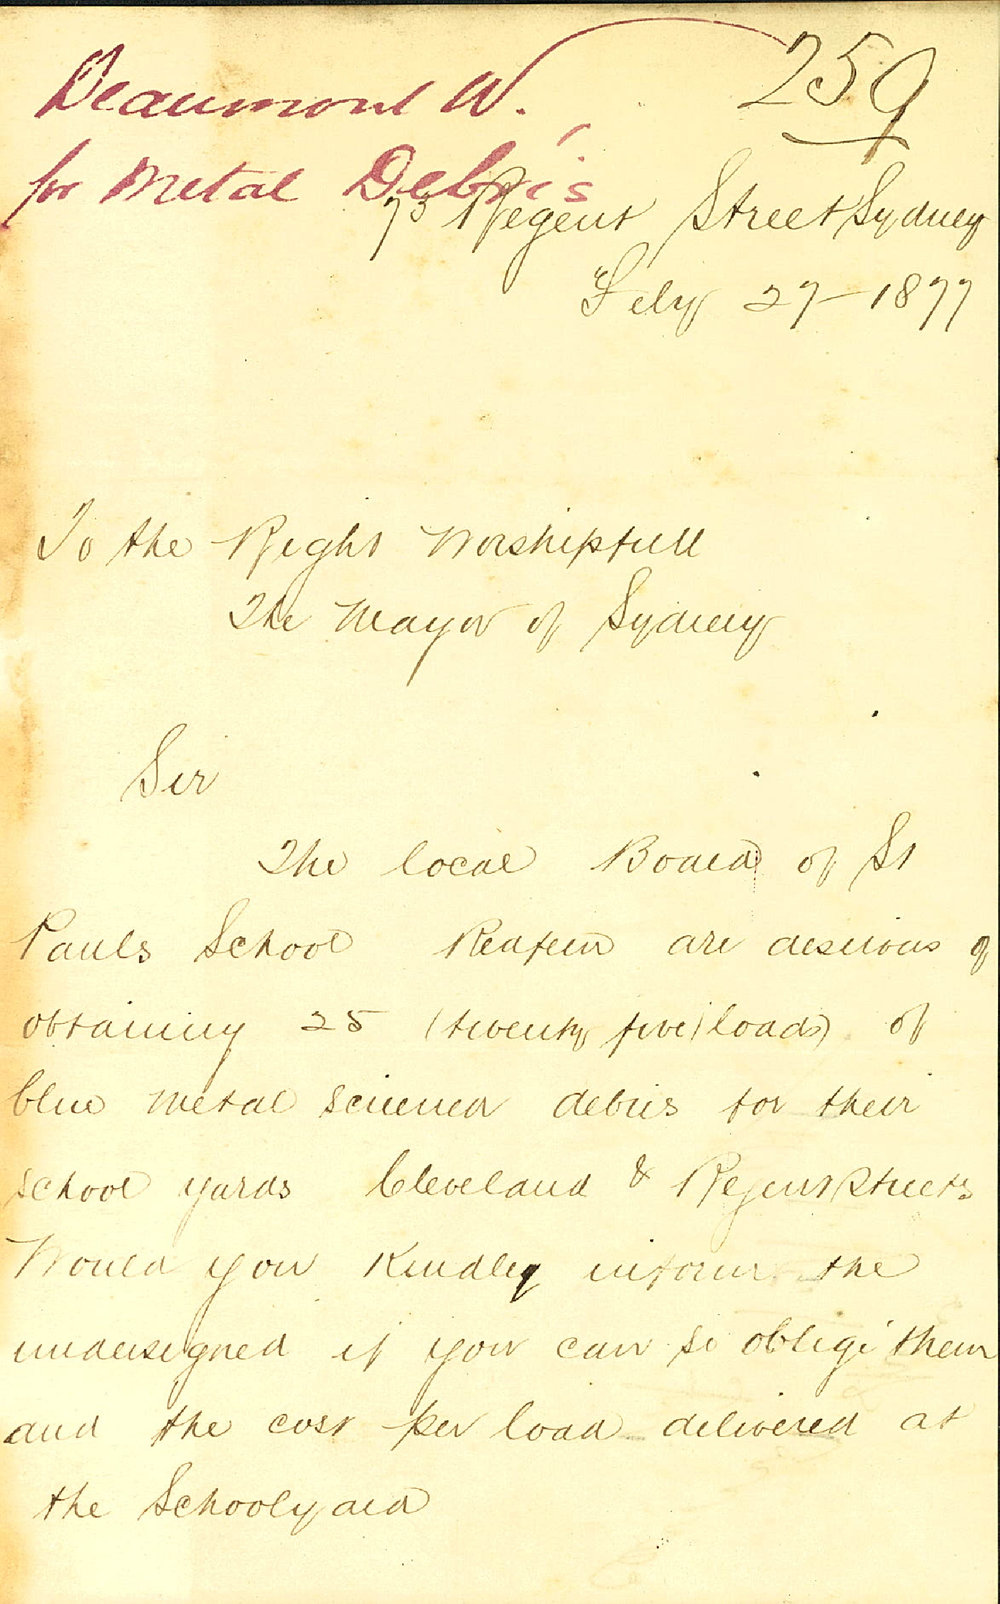 Beaumont W.
259
for Metal Debris
75 Regent Street Sydney
Feby 27 - 1877
To the Right Worshipfull
The Mayor of Sydney
Sir
The local Board of St
Pauls School Redfern are desirous of
obtaining 25 (twenty five) loads of
blue metal screened debris for their
school yards Cleveland & Regent Streets
Would you kindly inform the
undersigned if you can so oblige them
and the cost per load delivered at
the Schoolyard